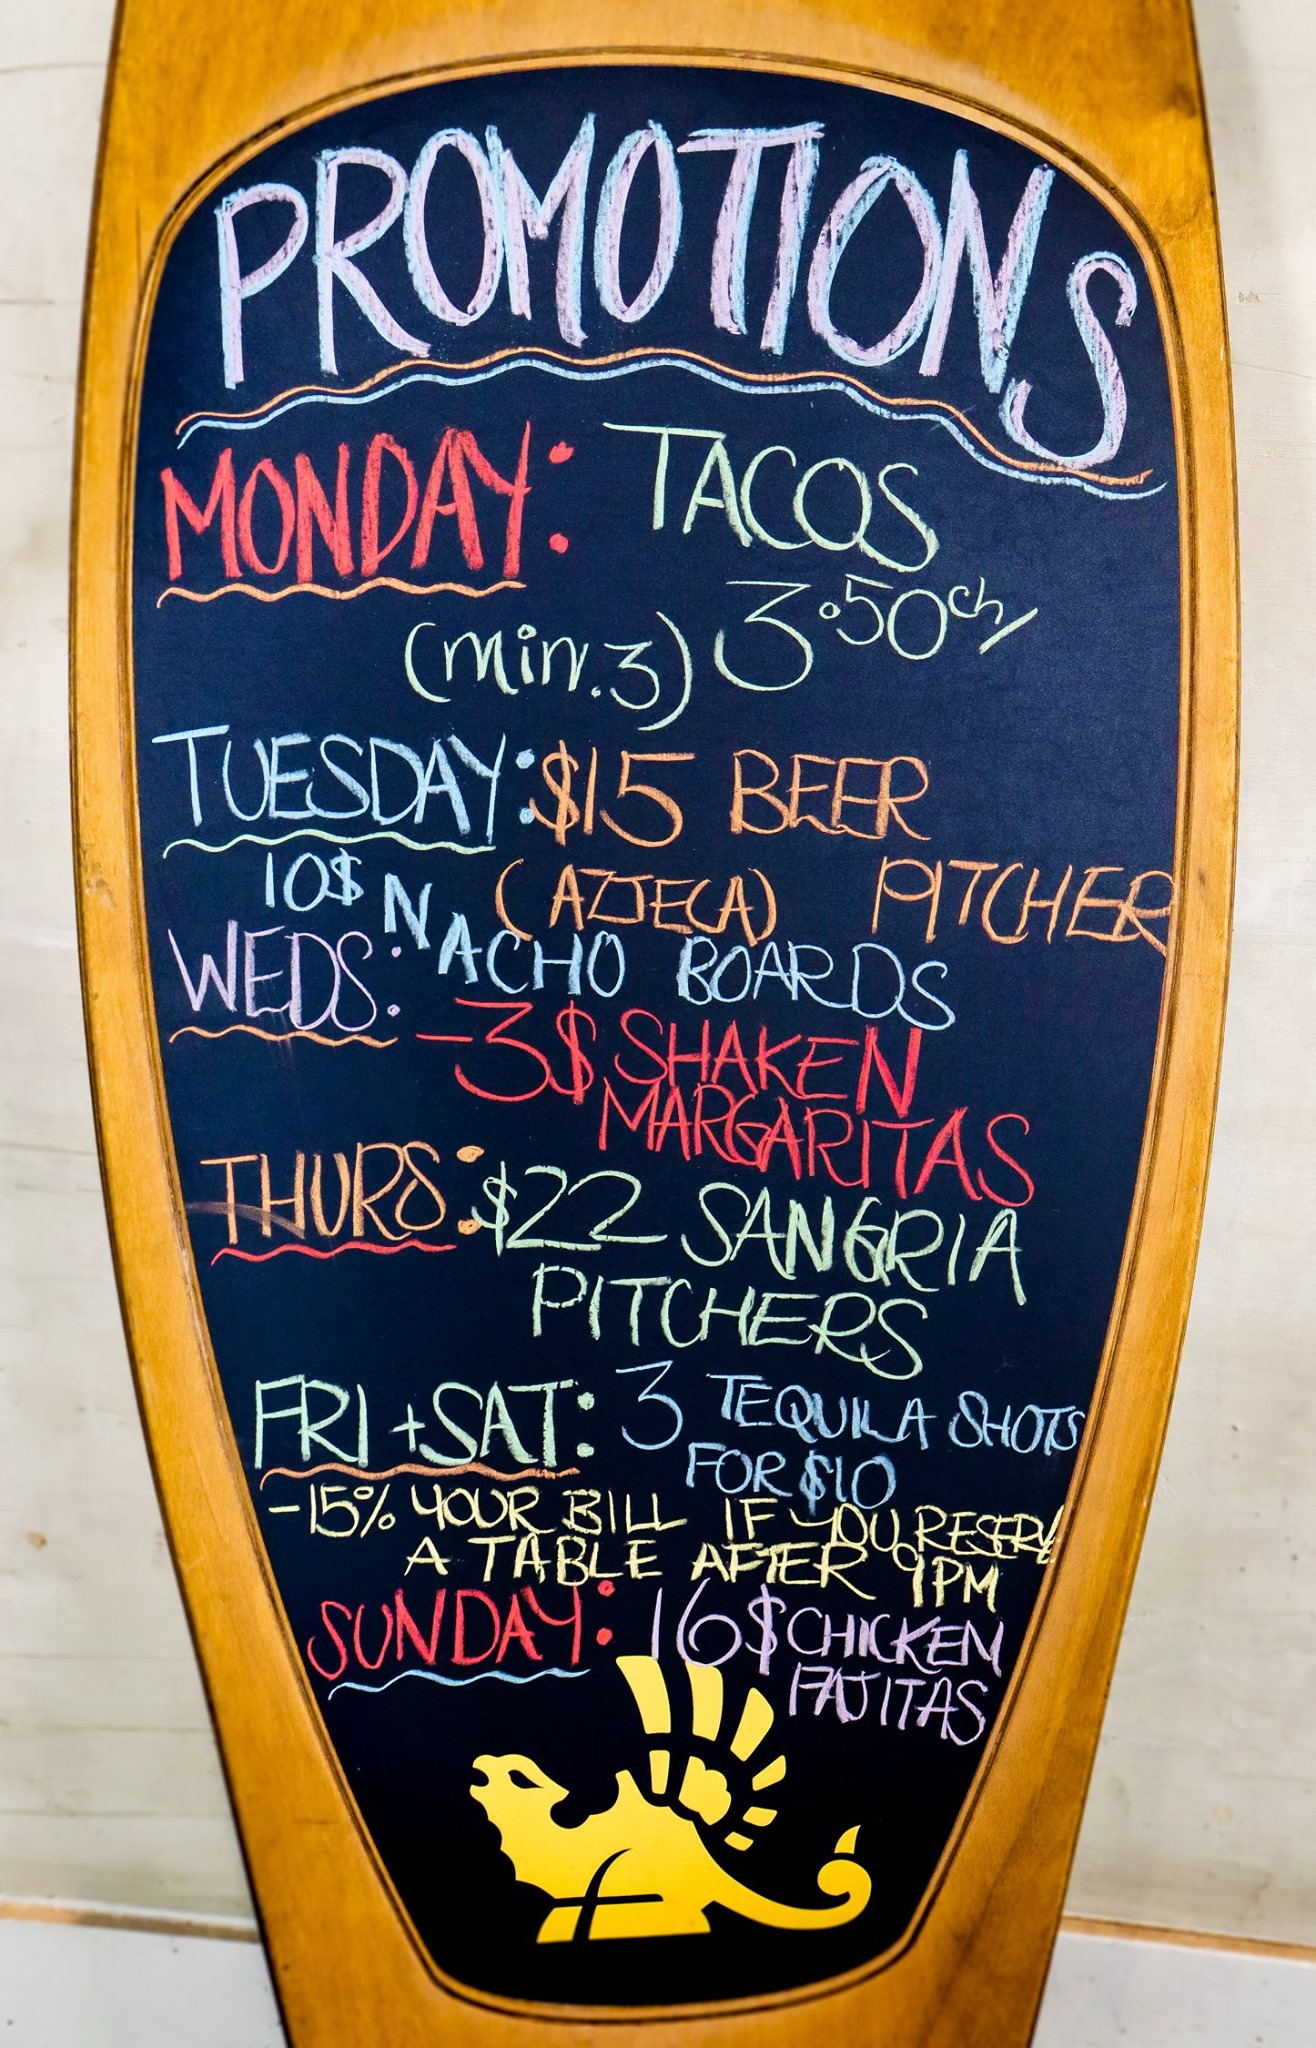 PROMOTIONS
MONDAY: TACOS
(min.3) 3.50ch/
TUESDAY: $15 BEER
(AZTECA) PITCHER
WEDS: 10$ NACHO BOARDS
-3$ SHAKEN
MARGARITAS
THURS: $22 SANGRIA
PITCHERS
FRI + SAT: 3 TEQUILA SHOTS
FOR $10
-15% YOUR BILL IF YOU RESERVE
A TABLE AFTER 9PM
SUNDAY: 16$ CHICKEN
FAJITAS